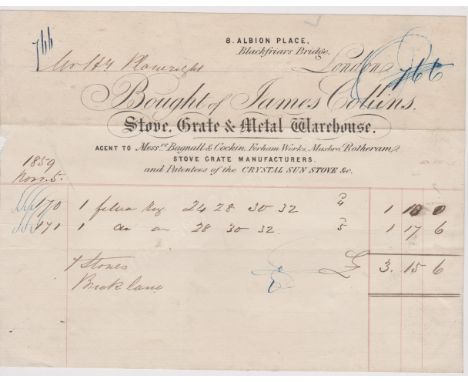 8. ALBION PLACE,
Blackfriars Bridge,
766
London
Mr
Bought of James Collins,
Stove, Grate & Metal Warehouse.
AGENT TO Messrs. Bagnall & Cockin, Forham Works, Masbro' Rotheram,
STOVE GRATE MANUFACTURERS.
and Patentees of the CRYSTAL SUN STOVE &c.
1859
Nov. 5.
170 1 24 28 30 32 1 18 0
171 1 28 30 32 1 17 6
£ 3. 15 6
Brick lane